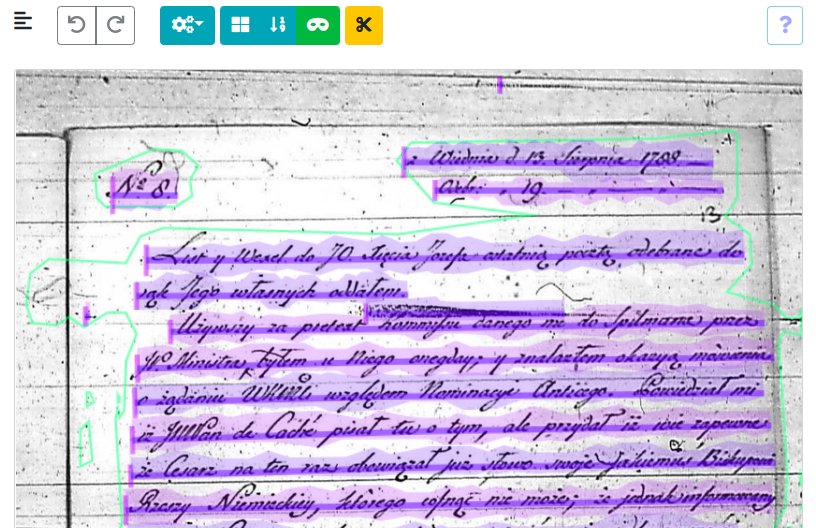 No 8.
z Widnia d 13. Sierpnia 1788
Odebr: „ 19. — „ — „ —
13
List y Wexel do JO. Xięcia Józefa ostatnią pocztą odebrane do
rąk Jego własnych oddałem
Używszy za pretext kommissu danego mi do Spilmana przez
byłem u niego onegday; y znalazłem okazyą mówienia
o żądaniu względem Nominacyi Anticego. Powiedział mi
iż de Caché pisał tu o tym, ale przydał iż wie zapewne
że Cesarz na ten raz obowiązał już słowo swoje jakiemuś Biskupowi
Rzeszy Niemieckiey, którego cofnąć nie może; że jednak informowany